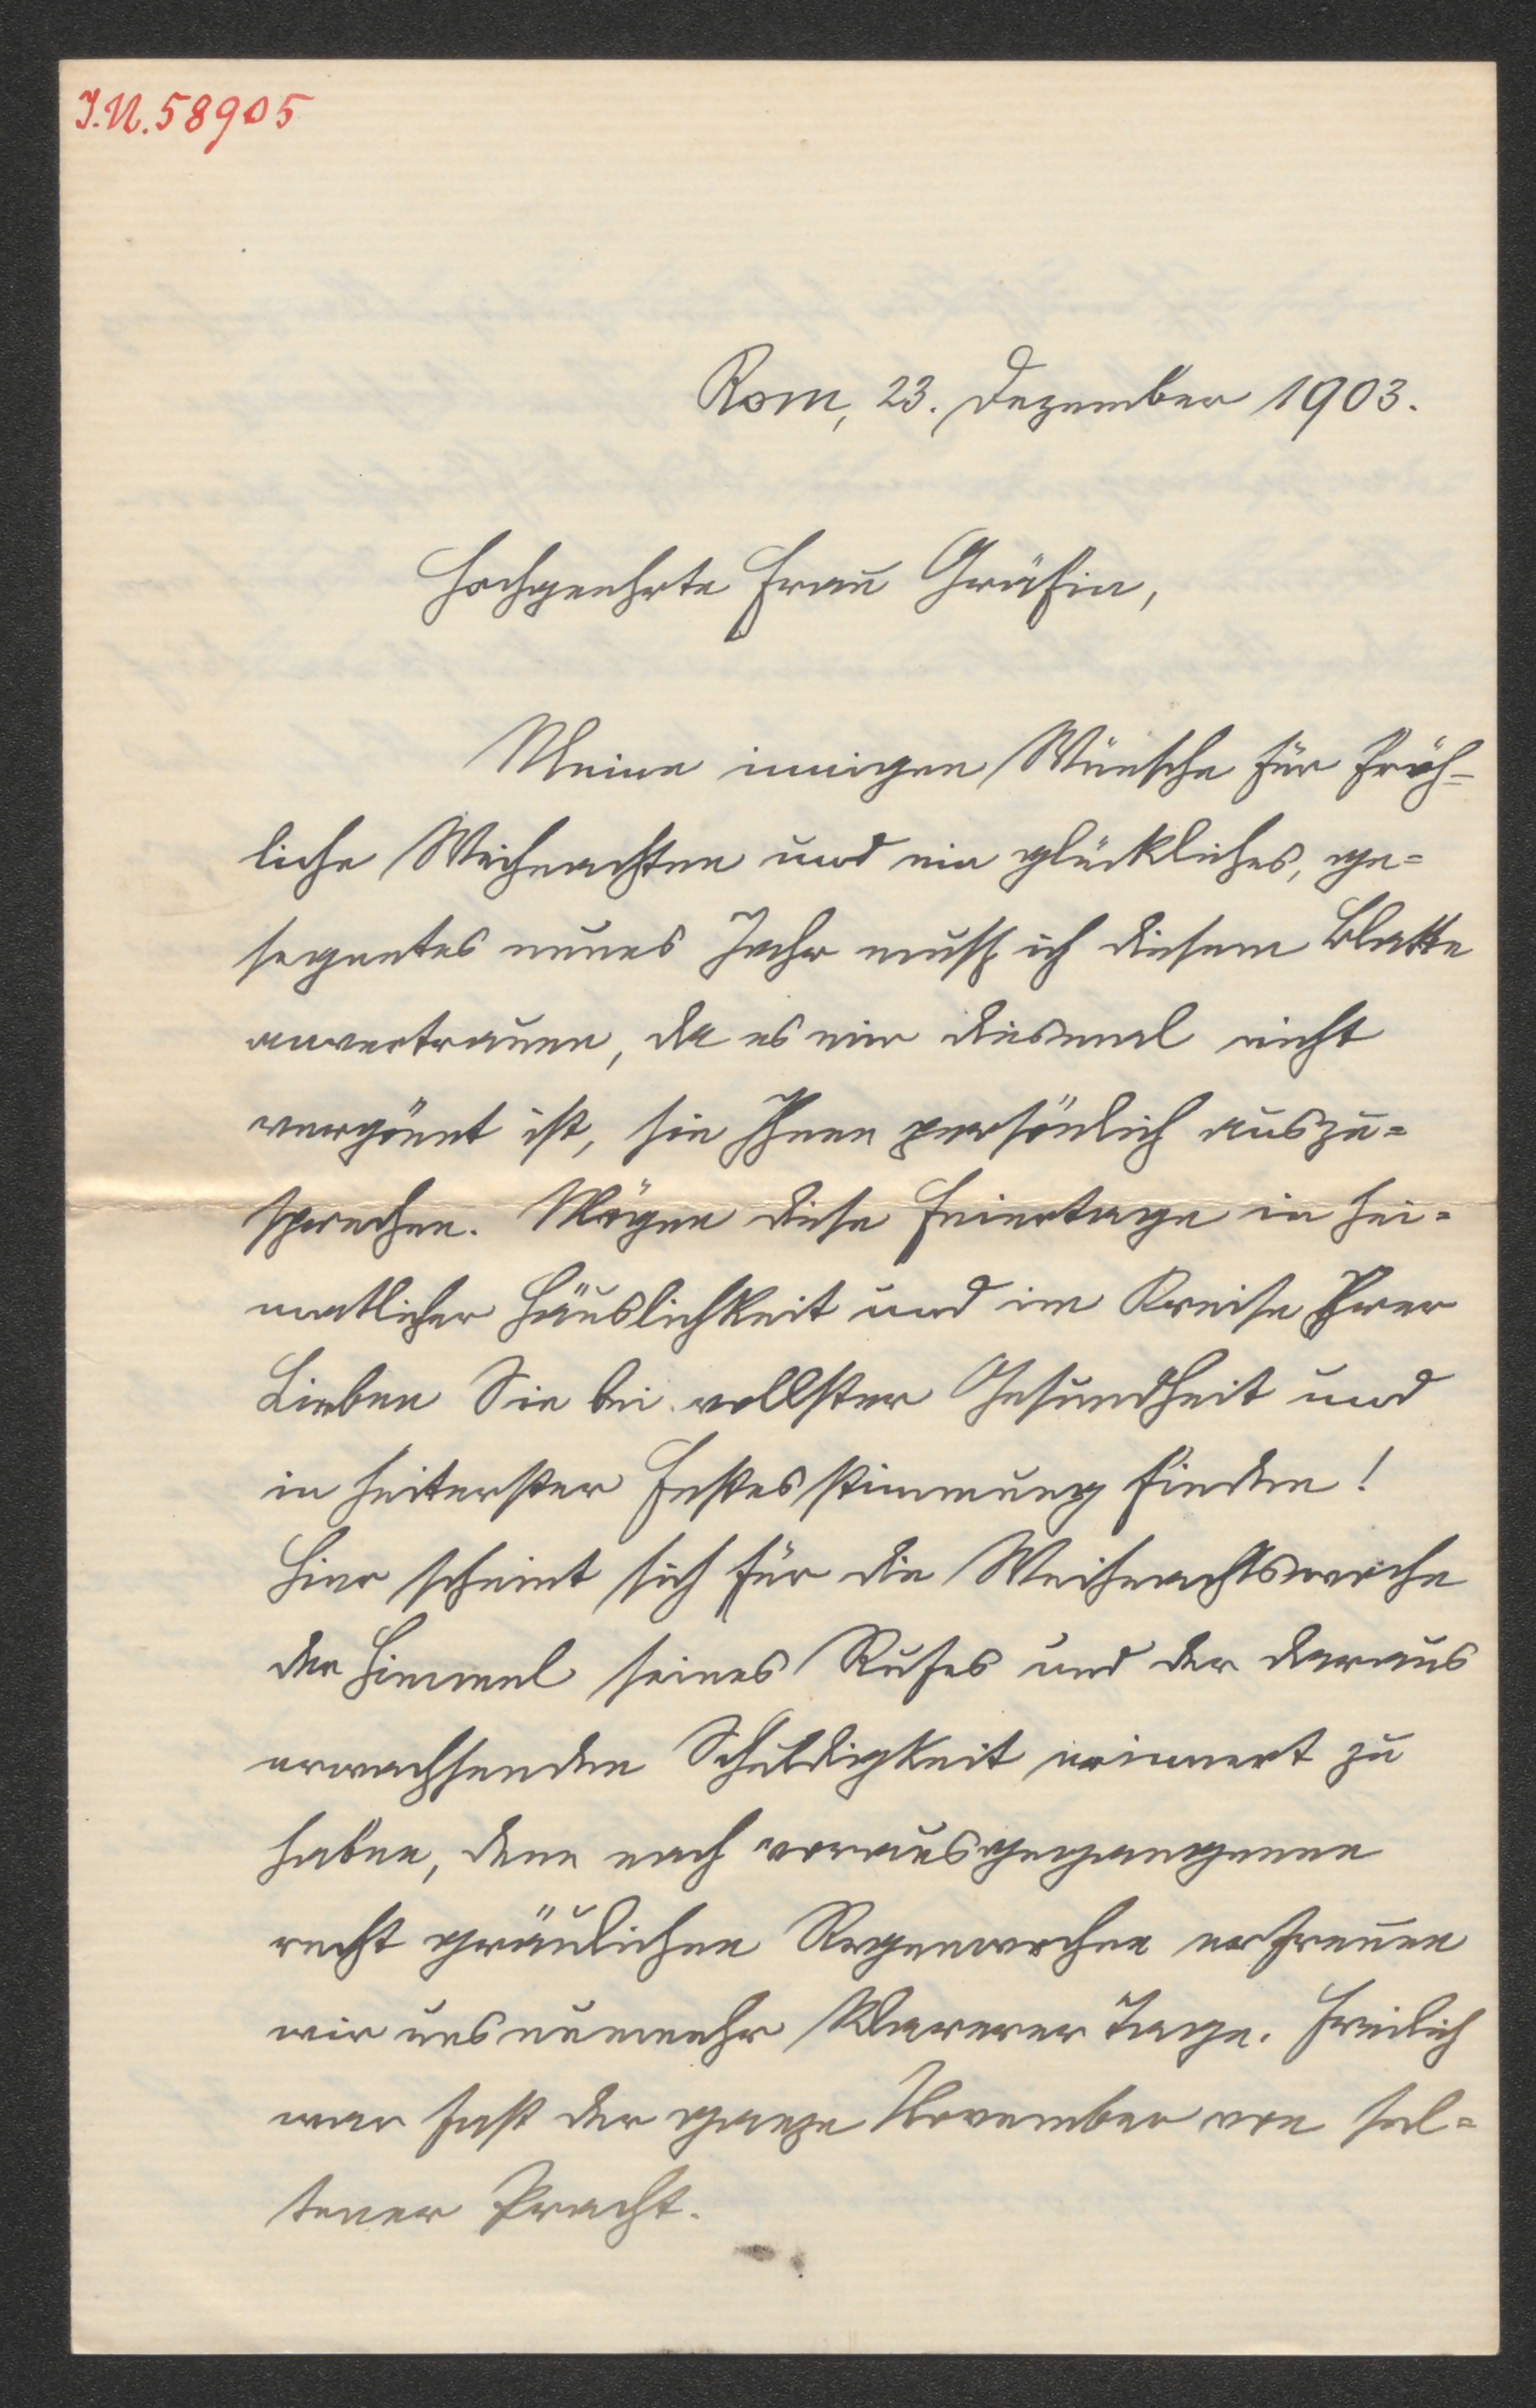 J.N. 58905
Rom, 23. Dezember 1903.
Hochgeehrte Frau Gräfin,
Meine innigen Wünsche für fröh-
liche Weihnachten und ein glückliches, ge-
segnetes neues Jahr muß ich diesem Blatte
anvertrauen, da es mir diesmal nicht
vergönnt ist, sie Ihnen persönlich auszu-
sprechen. Mögen diese Feiertage in hei-
matlicher Häuslichkeit und im Kreise Ihrer
Lieben Sie bei vollster Gesundheit und
in heiterster Festesstimmung finden!
Hier scheint sich für die Weihnachtswoche
der Himmel seines Rufes und der daraus
erwachsenden Schuldigkeit erinnert zu
haben, denn nach vorausgegangenen
recht gräulichen Regenwochen erfreuen
wir uns nunmehr klarerer Tage. Freilich
war fast der ganze November von sel-
tener Pracht.